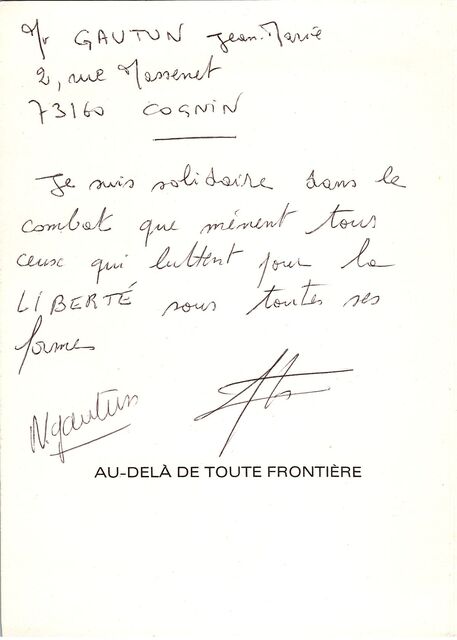 Mr GAUTUN Jean-Marie
2, rue Massenet
73160 COGNIN
Je suis solidaire dans le
combat que mènent tous
ceux qui luttent pour la
LIBERTÉ sous toutes ses
formes
N.gautun
AU-DELÀ DE TOUTE FRONTIÈRE